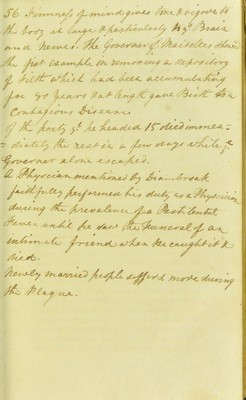 56. Firmness of mind gives tone & vigour to
the body at large & particularly to ye. Brain
and nerves. The Governor of Marseilles shew'd
the first example in removing a depository
of filth which had been accumulating
for 80 years & at length gave Birth to a
Contagious Disease.
Of the party yt. he headed 15 died immea-
=diately the rest in a few days while ye.
Governor alone escaped.
A Physician mentioned by Diembroek
faithfully performed his duty as a Physician
during the prevalence of a Pestilential
Fever until he saw the Funeral of an
intimate friend when he caught it &
died.
Newly married people suffer'd more during
the Plague.